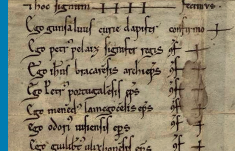 hoc signum
Ego gunsaluus curie dapifer confirmo
Ego petrꝰ pelaiz signifer regis cf
Ego ihns bracarensis archieps cf
Ego petrꝰ portugalensis eps cf
Ego menedꝰ lamecensis eps cf
Ego odoriꝰ uisensis eps cf
Ego eps cf